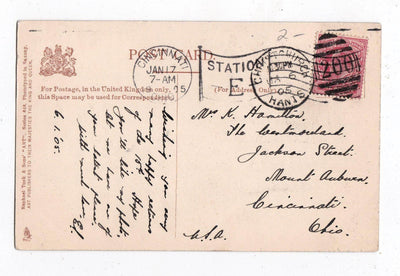 2-
POST CARD
CINCINNATI
JAN 17
7-AM
STATION
CHRISTCHURCH
HANTS
200
For Postage, in the United Kingdom only,
this Space may be used for Correspondence.
(For Address Only)
Raphael Tuck & Sons'
ART PUBLISHERS TO THEIR MAJESTIES THE KING AND QUEEN.
6.1.05.
Wishing you very
many happy returns
of the 18th. Hope
you'll like my photo,
with much love
Mr. K. Hamilton,
The Cumberland.
Jackson Street.
Mount Auburn,
Cincinnati
Ohio.
U.S.A.